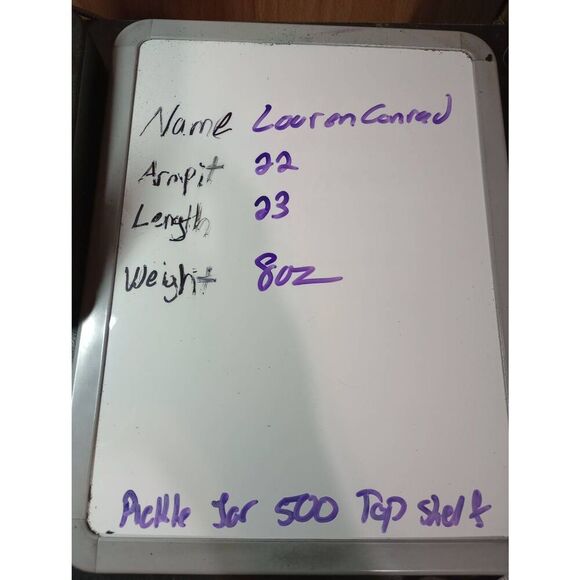 Name Lauren Conrad
Armpit 22
Length 23
Weight 8oz
Pickle Jar 500 Top Shelf